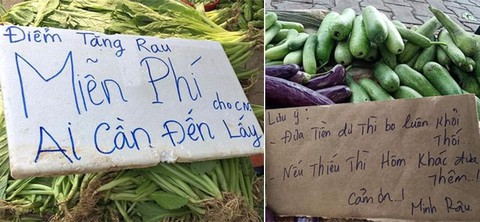 Điểm Tặng Rau
Miễn Phí
cho cm
Ai Cần Đến Lấy
Lưu ý:
- Đưa Tiền dư Thì bo luôn khỏi
Thối
- Nếu Thiếu Thì Hôm Khác đưa
Thêm...!
Cảm ơn..!
Minh Râu